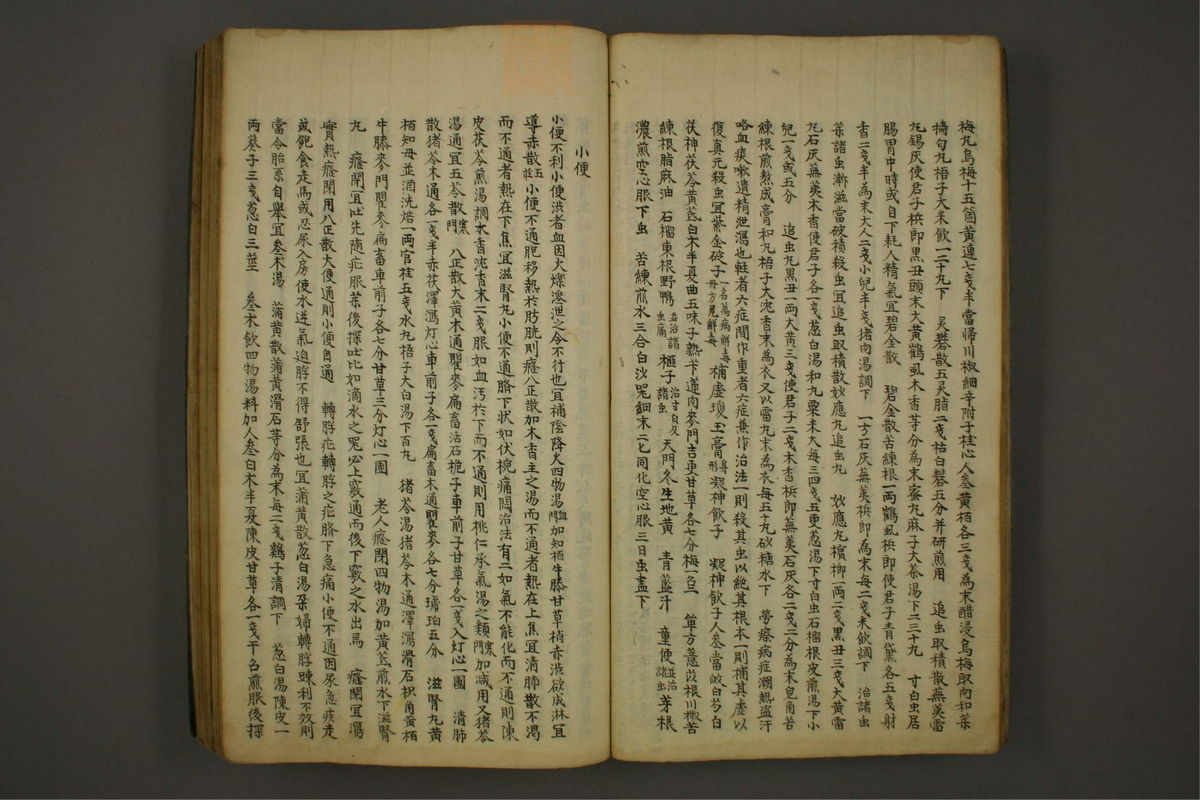 梅丸烏梅十五箇黃連七戔半當帰川椒細辛附子桂心人参黃栢各三戔為末醋浸烏梅取肉和藥
擣勻丸梧子大米飮一二十丸下　灵礬散五灵脂二戔枯白礬五分并研煎用　追虫取積散蕪荑雷
丸錫灰使君子梹郎黑丑頭末大黃鶴虱木香等分為末蜜丸麻子大茶湯下二三十丸　寸白虫居
腸胃中時或自下耗人精氣宜碧金散　碧金散苦練根一兩鶴虱梹郎使君子靑黛各五戔射
香二戔半為末大人二戔小兒半戔猪肉湯調下　一方石灰蕪荑梹郎為末每二戔米飮調下　治諸虫
藥諸虫漸滋當破積殺虫宜追虫取積散妙應丸追虫丸　妙應丸檳榔一兩二戔黑丑三戔大黃雷
丸石灰蕪荑木香使君子各一戔葱白湯和丸粟米大每三四戔五更葱湯下寸白虫石榴根皮煎湯下小
兒一戔或五分　追虫丸黑丑一兩大黃三戔使君子二戔木香梹郎蕪荑石灰各二戔二分為末皂角苦
練根煎熬成膏和丸梧子大沈香末為衣又以雷丸末為衣每五十丸砂糖水下　勞瘵病症潮熱盜汗
咯血痰嗽遺精泄瀉也輕者六症間作重者六症兼作治法一則殺其虫以絶其根本一則補其虛以
復眞元殺虫宜紫金錠子一名萬病解毒丹方見解毒補虛瓊玉膏身形凝神飮子　凝神飮子人参當皈白芍白
茯神茯苓黃芪白木半夏曲五味子熟芐蓮肉麥門吉更甘草各七分梅一召一　單方薏苡根川椒苦
練根脂麻油　石榴東根野鴨並治諸虫痛榧子治寸白及諸虫天門冬生地黃　靑藍汁　童便並治諸虫茅根
濃煎空心服下虫　苦練煎水三合白沙蜜細末二匕同化空心服三日虫盡下
小便
小便不利小便澁者血因火燥滲泄之令不行也宜補陰降火四物湯血門加知栢牛膝甘草梢赤澁欲成淋宜
導赤散五臟小便不通胞移熱於肪胱則癃八正散加木香主之湯而不通者熱在上焦宜淸肺散不渴
而不通者熱在下焦宜滋腎丸小便不通臍下狀如伏椀痛悶治法有二如氣不能化而不通則陳
皮茯苓煎湯調木香沈香末二戔服如血汚於下而不通則用桃仁承氣湯之類寒門加减用又猪苓
湯通宜五苓散寒門　八正散大黃木通瞿麥扁畜活石梔子車前子甘草各一戔入灯心一團　淸肺
散猪苓木通各一戔半赤茯澤瀉灯心車前子各一戔扁畜木通瞿麥各七分琥珀五分　滋腎丸黃
栢知母並酒洗焙一兩官桂五戔水丸梧子大白湯下百丸　猪苓湯猪苓木通澤瀉滑石枳角黃栢
牛膝麥門瞿麥扁畜車前子各七分甘草三分灯心一團　老人癃閉四物湯加黃芪煎水下滋腎
丸　癃閉宜吐先随症服藥後探吐比如滴水之器必上竅通而後下竅之水出焉　癃閉宜瀉
實熱癃閉用八正散大便通則小便自通　轉脬症轉脬之症臍下急痛小便不通因尿急疾走
或飽食走馬或忍尿入房使水逆氣迫脬不得舒張也宜蒲黃散葱白湯孕婦轉脬踈利不效則
當令胎系自擧宜叅朮湯　蒲黃散蒲黃滑石等分為末每二戔鷄子淸調下　葱白湯陳皮一
兩葵子三戔葱白三莖　叅朮飮四物湯料加人叅白木半夏陳皮甘草各一戔干召煎服後探